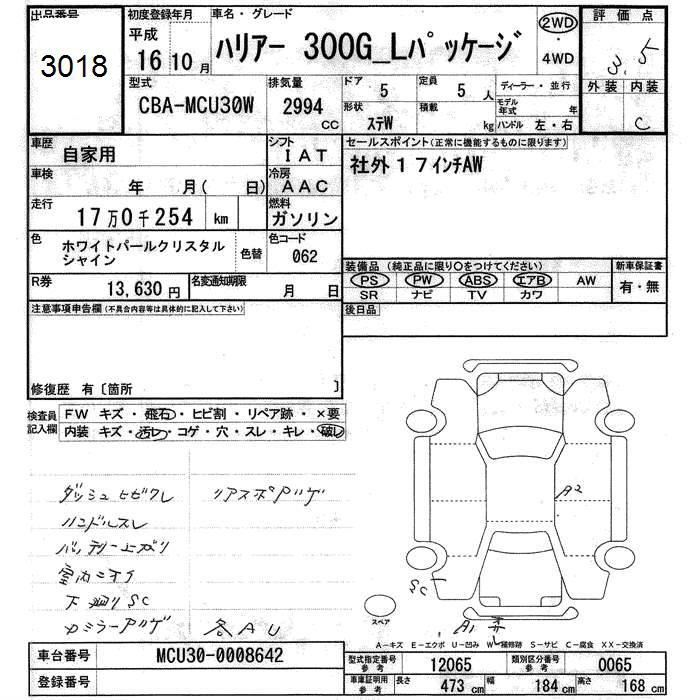 出品番号
3018
初度登録年月
平成
16 10月
車名・グレード
ハリアー 300G_Lパッケージ
2WD
4WD
評価点
3.5
外装 内装
C
型式
CBA-MCU30W
排気量
2994
cc
ドア
5
定員
5 人
形状
ステW
積載
kg
ディーラー・並行
モデル年式 年
ハンドル 左・右
車歴
自家用
シフト
IAT
車検
年 月( 日)
冷房
AAC
走行
17万0千254 km
燃料
ガソリン
色
ホワイトパールクリスタル
シャイン
色替
色コード
062
R券
13,630円
名変通知期限
月 日
セールスポイント(正常に機能するものに限ります)
社外17インチAW
装備品(純正品に限り○をつけてください)
PS PW ABS エアB AW
SR ナビ TV カワ
新車保証書
有・無
後日品
注意事項申告欄(不具合内容等は具体的に記入して下さい)
修復歴 有〔箇所 〕
検査員
記入欄
FW キズ・飛石・ヒビ割・リペア跡・×要
内装 キズ・汚レ・コゲ・穴・スレ・キレ・破レ
ダッシュヒビワレ リアスポアリゲ
ハンドルスレ
バッテリー上ガリ
室内ニオイ
下廻りSC
各AU
A2
SC
A1
スペア
A-キズ E-エクボ U-凹み W-補修跡 S-サビ C-腐食 XX-交換済
車台番号
MCU30-0008642
登録番号
型式指定番号
参考
12065
類別区分番号
参考
0065
車庫証明用
参考
長さ
473 cm
幅
184 cm
高さ
168 cm